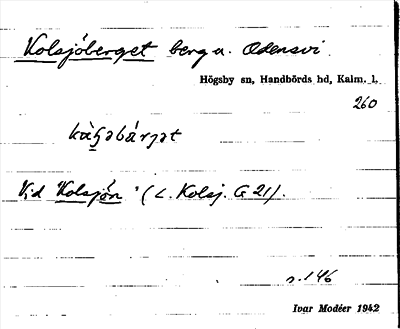 Kolsjöberget berg u. Odensvi
Högsby sn, Handbörds hd, Kalm. l.
260
Vid Kolsjön (L. Kolsj. G 21).
s. 146
Ivar Modéer 1942